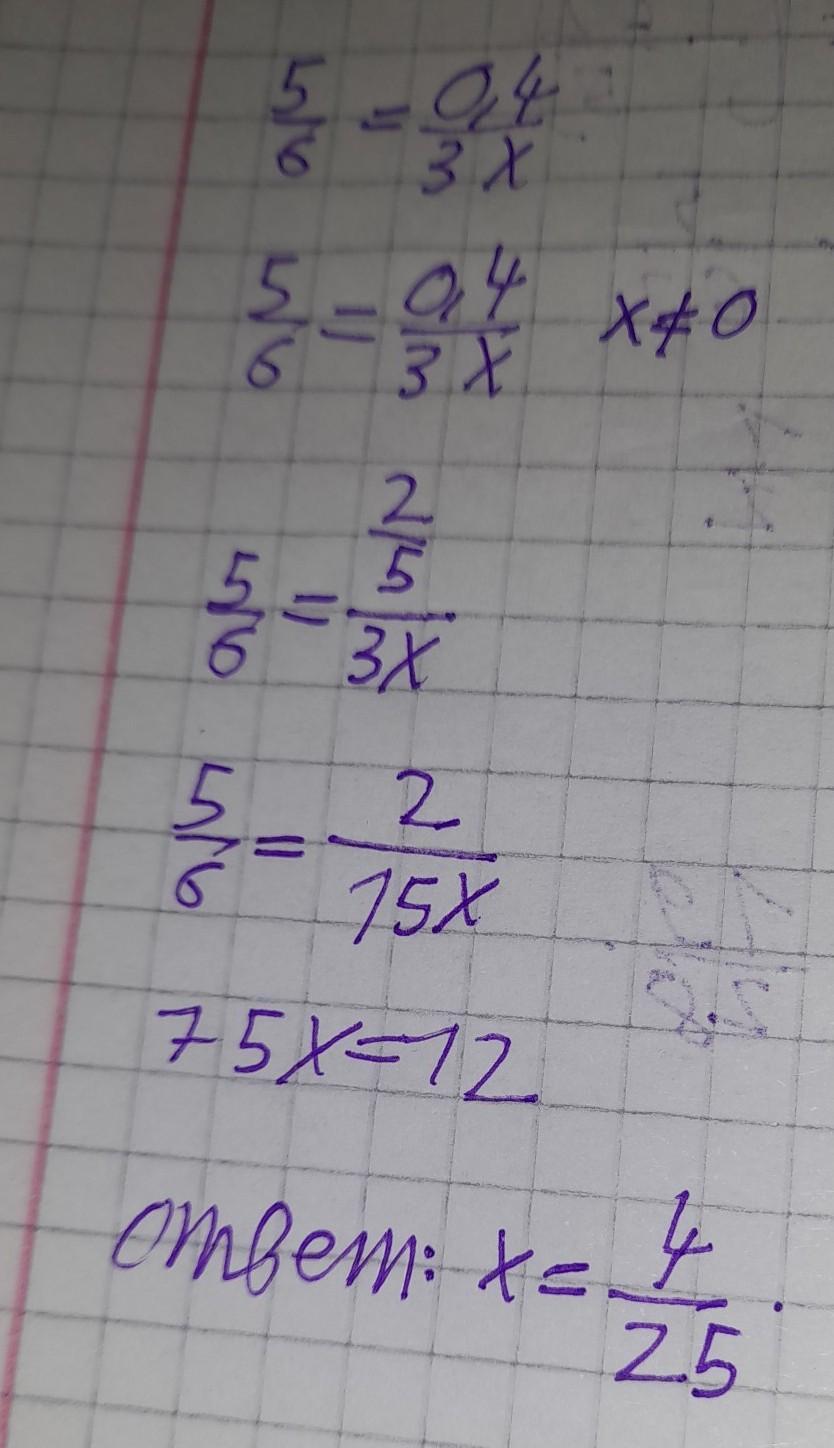 5/6 = 0,4/3x
5/6 = 0,4/3x x≠0
5/6 = (2/5)/3x
5/6 = 2/15x
75x=12
ответ: x = 4/25.